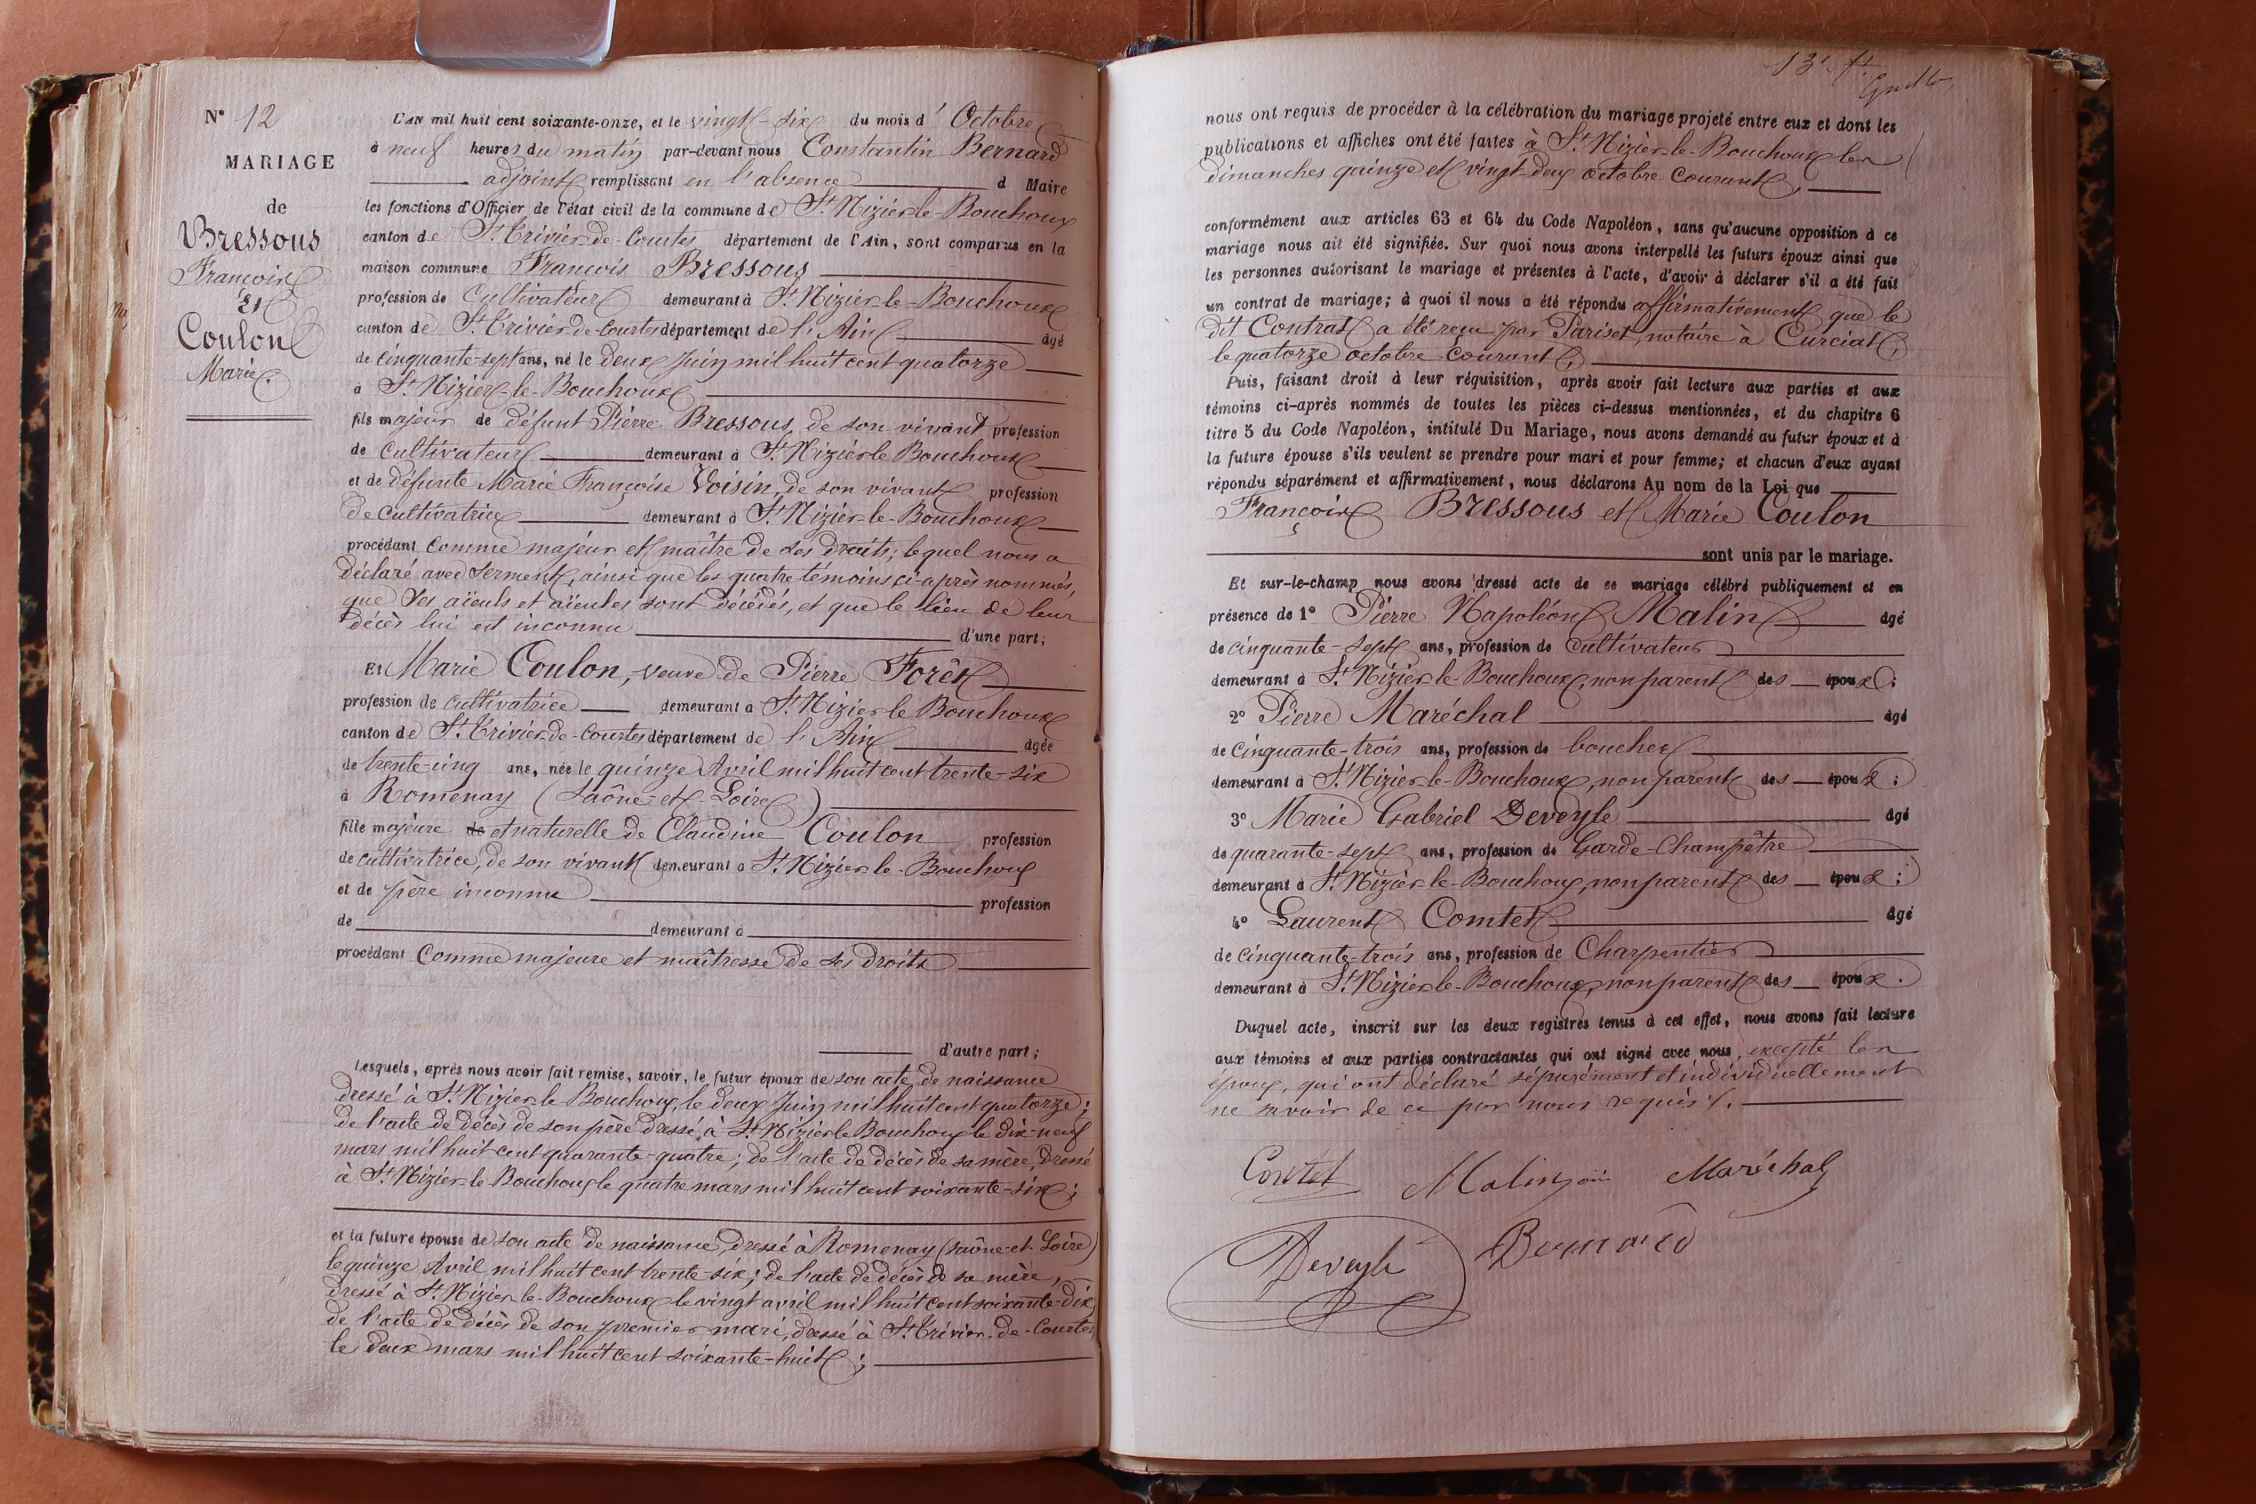 N° 12
MARIAGE
de
Bressous
François
Et
Coulon
Marie.
L'an mil huit cent soixante-onze, et le vingt-six du mois d' Octobre
à neuf heures du matin par-devant nous Constantin Bernard
adjoint remplissant en l'absence d Maire
les fonctions d'Officier de l'état civil de la commune de St Nizier-le-Bouchoux
canton de St Trivier-de-Courtes département de l'Ain, sont comparus en la
maison commune François Bressous
profession de Cultivateur demeurant à St Nizier-le-Bouchoux
canton de St Trivier-de-Courtes département de l'Ain âgé
de cinquante-sept ans, né le deux Juin mil huit cent quatorze
à St Nizier-le-Bouchoux
fils majeur de défunt Pierre Bressous, de son vivant profession
de cultivateur demeurant à St Nizier le Bouchoux
et de défunte Marie Françoise Voisin, de son vivant profession
de cultivatrice demeurant à St Nizier-le-Bouchoux
procédant comme majeur et maître de ses droits; lequel nous a
déclaré avec serment, ainsi que les quatre témoins ci-après nommés,
que ses aïeuls et aïeules sont décédés, et que le lieu de leur
décès lui est inconnu d'une part;
Et Marie Coulon, veuve de Pierre Forêt
profession de cultivatrice demeurant à St Nizier le Bouchoux
canton de St Trivier-de-Courtes département de l'Ain âgée
de trente-cinq ans, née le quinze Avril mil huit cent trente-six
à Romenay (Saône-et-Loire)
fille majeure de et naturelle de Claudine Coulon profession
de cultivatrice, de son vivant demeurant à St Nizier-le-Bouchoux
et de père inconnu profession
de demeurant à
procédant comme majeure et maîtresse de ses droits
d'autre part;
Lesquels, après nous avoir fait remise, savoir, le futur époux de son acte de naissance
dressé à St Nizier-le-Bouchoux, le deux Juin mil huit cent quatorze;
de l'acte de décès de son père dressé à St Nizier le Bouchoux le dix-neuf
mars mil huit cent quarante-quatre; de l'acte de décès de sa mère, dressé
à St Nizier-le-Bouchoux le quatre mars mil huit cent soixante-six;
et la future épouse de son acte de naissance, dressé à Romenay (Saône-et-Loire)
le quinze Avril mil huit cent trente-six; de l'acte de décès de sa mère,
dressé à St Nizier-le-Bouchoux le vingt avril mil huit cent soixante-dix,
de l'acte de décès de son premier mari, dressé à St Trivier-de-Courtes
le deux mars mil huit cent soixante-huit;
nous ont requis de procéder à la célébration du mariage projeté entre eux et dont les
publications et affiches ont été faites à St Nizier-le-Bouchoux les
dimanches quinze et vingt-deux octobre courant,
conformément aux articles 63 et 64 du Code Napoléon, sans qu'aucune opposition à ce
mariage nous ait été signifiée. Sur quoi nous avons interpellé les futurs époux ainsi que
les personnes autorisant le mariage et présentes à l'acte, d'avoir à déclarer s'il a été fait
un contrat de mariage; à quoi il nous a été répondu affirmativement que le
dit Contrat a été reçu par Pariset, notaire à Curciat,
le quatorze octobre courant,
Puis, faisant droit à leur réquisition, après avoir fait lecture aux parties et aux
témoins ci-après nommés de toutes les pièces ci-dessus mentionnées, et du chapitre 6
titre 5 du Code Napoléon, intitulé Du Mariage, nous avons demandé au futur époux et à
la future épouse s'ils veulent se prendre pour mari et pour femme; et chacun d'eux ayant
répondu séparément et affirmativement, nous déclarons Au nom de la Loi que
François Bressous et Marie Coulon
sont unis par le mariage.
Et sur-le-champ nous avons dressé acte de ce mariage célébré publiquement et en
présence de 1° Pierre Napoléon Malin âgé
de cinquante-sept ans, profession de cultivateur
demeurant à St Nizier-le-Bouchoux, non parent des époux;
2° Pierre Maréchal âgé
de cinquante-trois ans, profession de boucher
demeurant à St Nizier-le-Bouchoux, non parent des époux;
3° Marie Gabriel Deveyle âgé
de quarante-sept ans, profession de Garde-Champêtre
demeurant à St Nizier-le-Bouchoux, non parent des époux;
4° Laurent Comtet âgé
de cinquante-trois ans, profession de Charpentier
demeurant à St Nizier-le-Bouchoux, non parent des époux.
Duquel acte, inscrit sur les deux registres tenus à cet effet, nous avons fait lecture
aux témoins et aux parties contractantes qui ont signé avec nous, excepté les
époux, qui ont déclaré séparément et individuellement
ne savoir de ce par nous requis.
Comtet Malin Maréchal
Deveyle Bernard